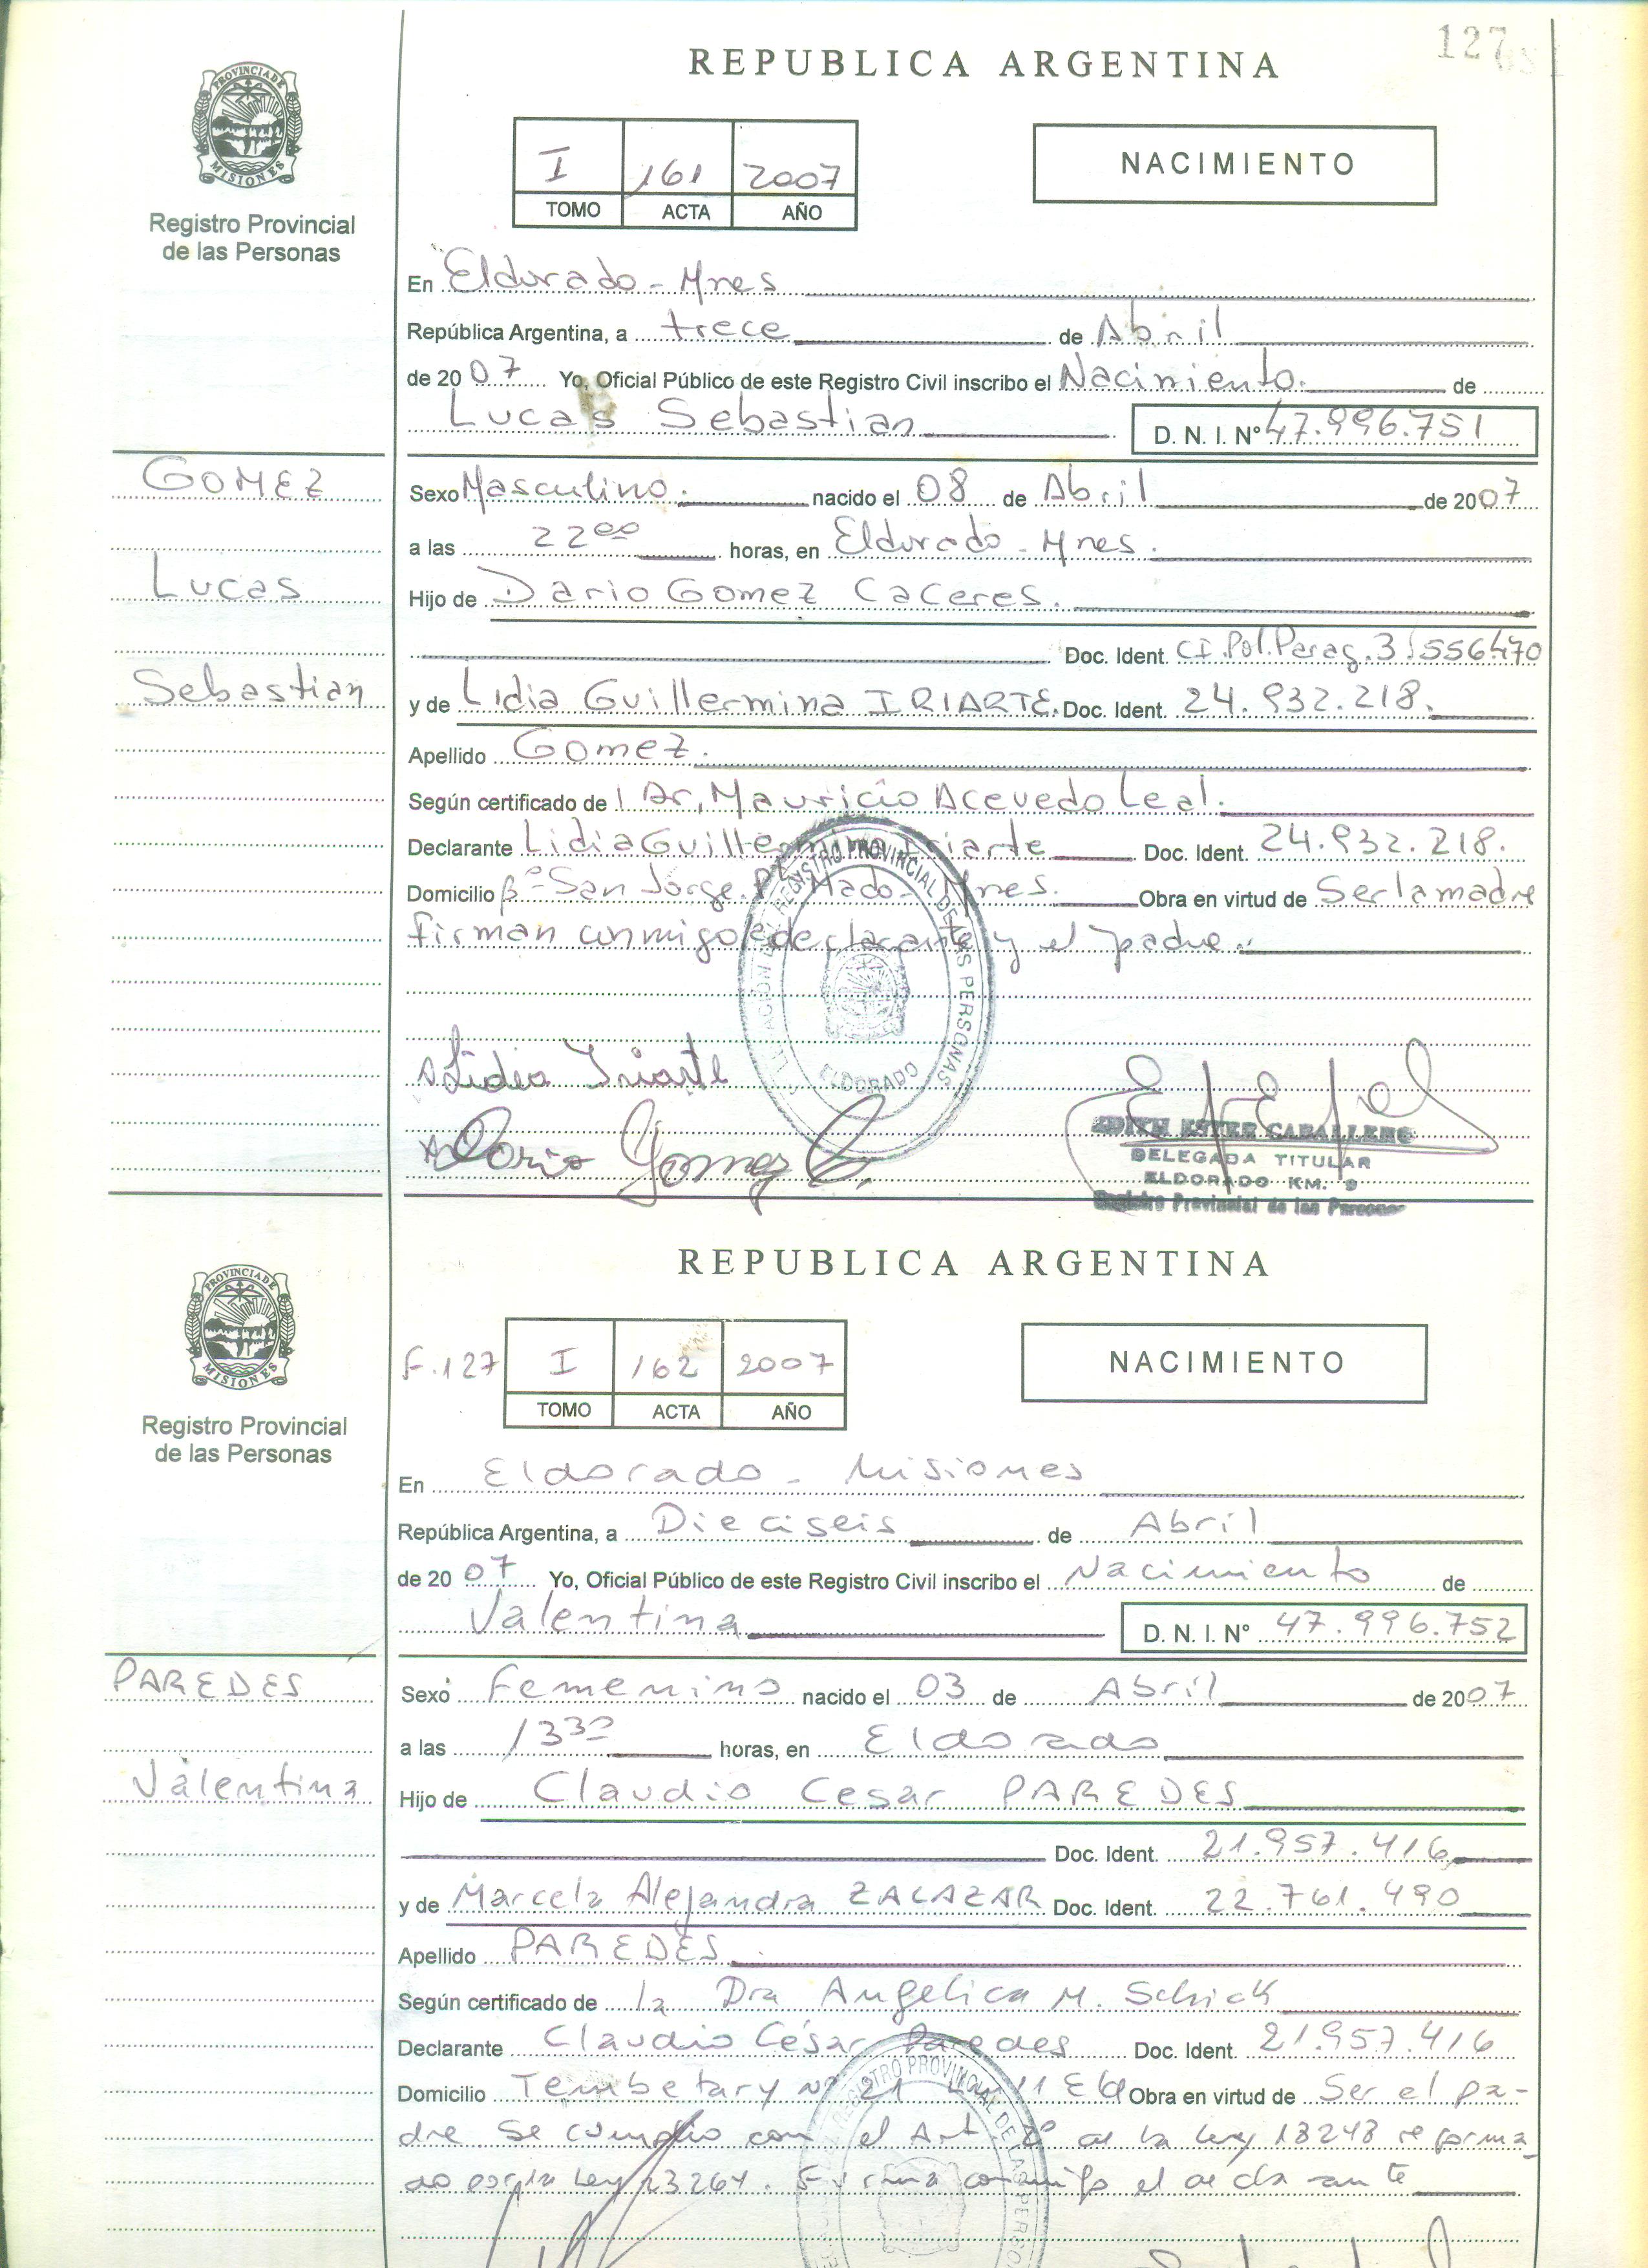 127
REPUBLICA ARGENTINA
PROVINCIA DE MISIONES
Registro Provincial
de las Personas
I 161 2007
TOMO ACTA AÑO
NACIMIENTO
En Eldorado - Mnes
República Argentina, a trece de Abril
de 2007 Yo, Oficial Público de este Registro Civil inscribo el Nacimiento. de
Lucas Sebastian D. N. I. Nº 47.996.751
GOMEZ
Sexo Masculino. nacido el 08 de Abril de 2007
a las 22 00 horas, en Eldorado - Mnes.
Lucas
Hijo de Dario Gomez Caceres.
Doc. Ident. CI.Pol.Parag.3.556470
Sebastian
y de Lidia Guillermina IRIARTE. Doc. Ident. 24.932.218.
Apellido Gomez.
Según certificado de l Dr. Mauricio Acevedo Leal.
Declarante Lidia Guillermina Iriarte Doc. Ident. 24.932.218.
Domicilio Bº San Jorge. Pto Mado - Mnes. Obra en virtud de Ser la madre
firman conmigo declarante y el padre.
REGISTRO PROVINCIAL DE LAS PERSONAS
ELDORADO
Lidia Iriarte
Dario Gomez C.
EDITH ESTER CABALLERO
DELEGADA TITULAR
ELDORADO KM. 9
Registro Provincial de las Personas
REPUBLICA ARGENTINA
PROVINCIA DE MISIONES
Registro Provincial
de las Personas
F.127 I 162 2007
TOMO ACTA AÑO
NACIMIENTO
En Eldorado - Misiones
República Argentina, a Dieciseis de Abril
de 2007 Yo, Oficial Público de este Registro Civil inscribo el Nacimiento de
Valentina D. N. I. Nº 47.996.752
PAREDES
Sexo Femenino nacido el 03 de Abril de 2007
a las 13 30 horas, en Eldorado
Valentina
Hijo de Claudio Cesar PAREDES
Doc. Ident. 21.957.416
y de Marcela Alejandra ZALAZAR Doc. Ident. 22.761.490
Apellido PAREDES
Según certificado de la Dra Angelica M. Schick
Declarante Claudio César Paredes Doc. Ident. 21.957.416
Domicilio Tembetary Nº 21 11 Obra en virtud de Ser el pa-
dre Se cumplio con el Art 2º de la Ley 18248 reforma-
do por la Ley 23264. Firma conmigo el declarante
REGISTRO PROVINCIAL DE LAS PERSO